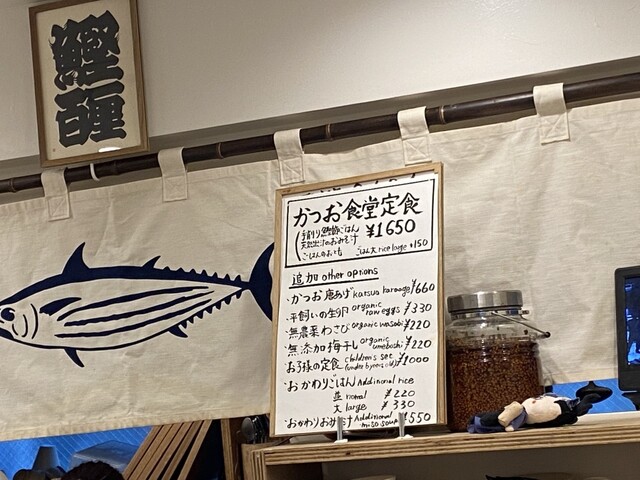 鰹
かつお食堂定食
手削り鰹節ごはん
天然出汁のおみそ汁
ごはんのおとも
¥1650
ごはん大 rice large +¥150
追加 other options
・かつお唐あげ katsuo karaage ¥660
・平飼いの生卵 organic raw eggs ¥330
・無農薬わさび organic wasabi ¥220
・無添加梅干し organic umeboshi ¥220
・お子様の定食 children's set (under 6 years old) ¥1000
・おかわりごはん Additional rice
並 normal ¥220
大 large ¥330
・おかわりおみそ汁 Additional miso soup ¥550